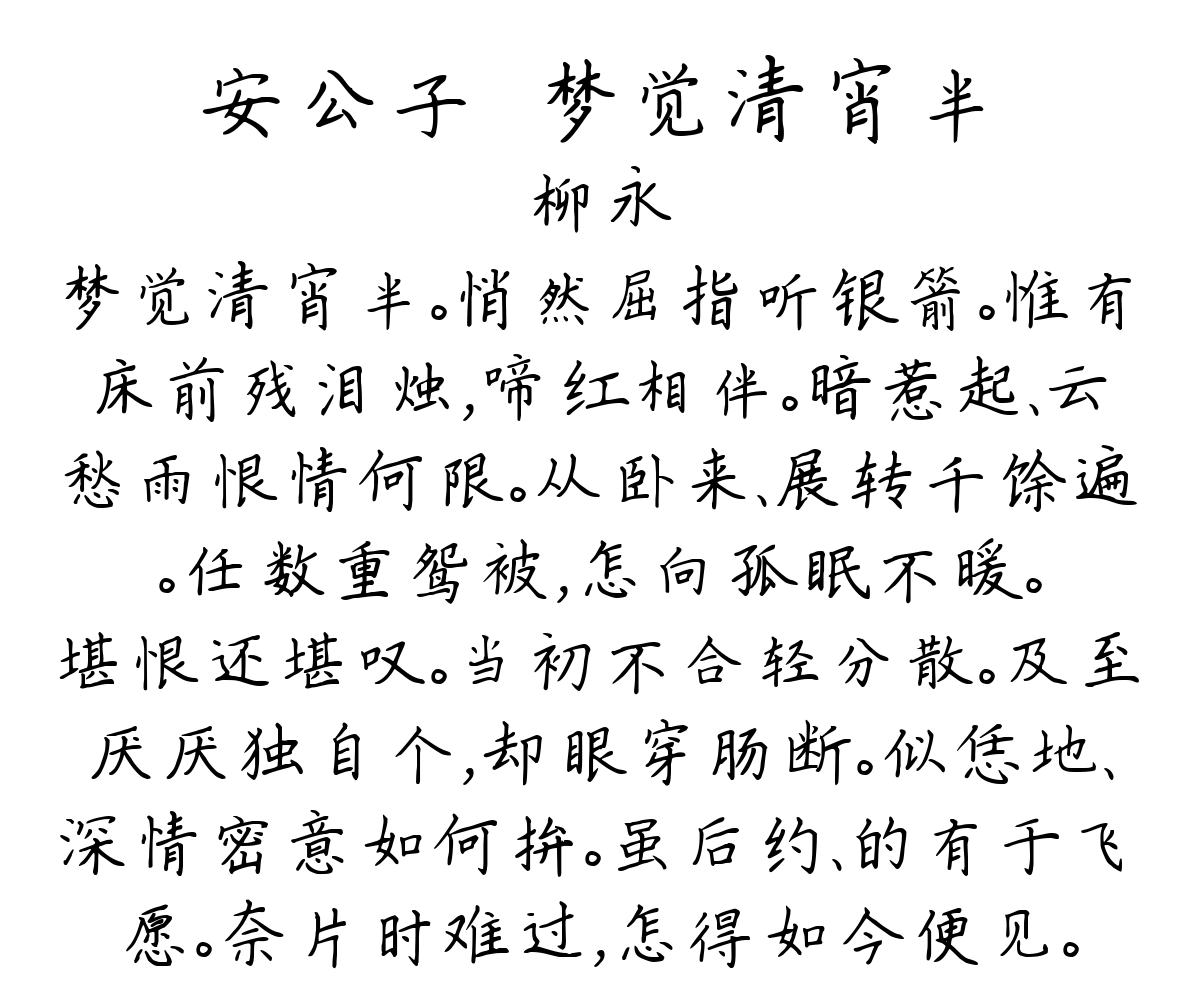 安公子 梦觉清宵半
柳永
梦觉清宵半。悄然屈指听银箭。惟有
床前残泪烛,啼红相伴。暗惹起、云
愁雨恨情何限。从卧来、展转千馀遍
。任数重鸳被,怎向孤眠不暖。
堪恨还堪叹。当初不合轻分散。及至
厌厌独自个,却眼穿肠断。似恁地、
深情密意如何拚。虽后约、的有于飞
愿。奈片时难过,怎得如今便见。